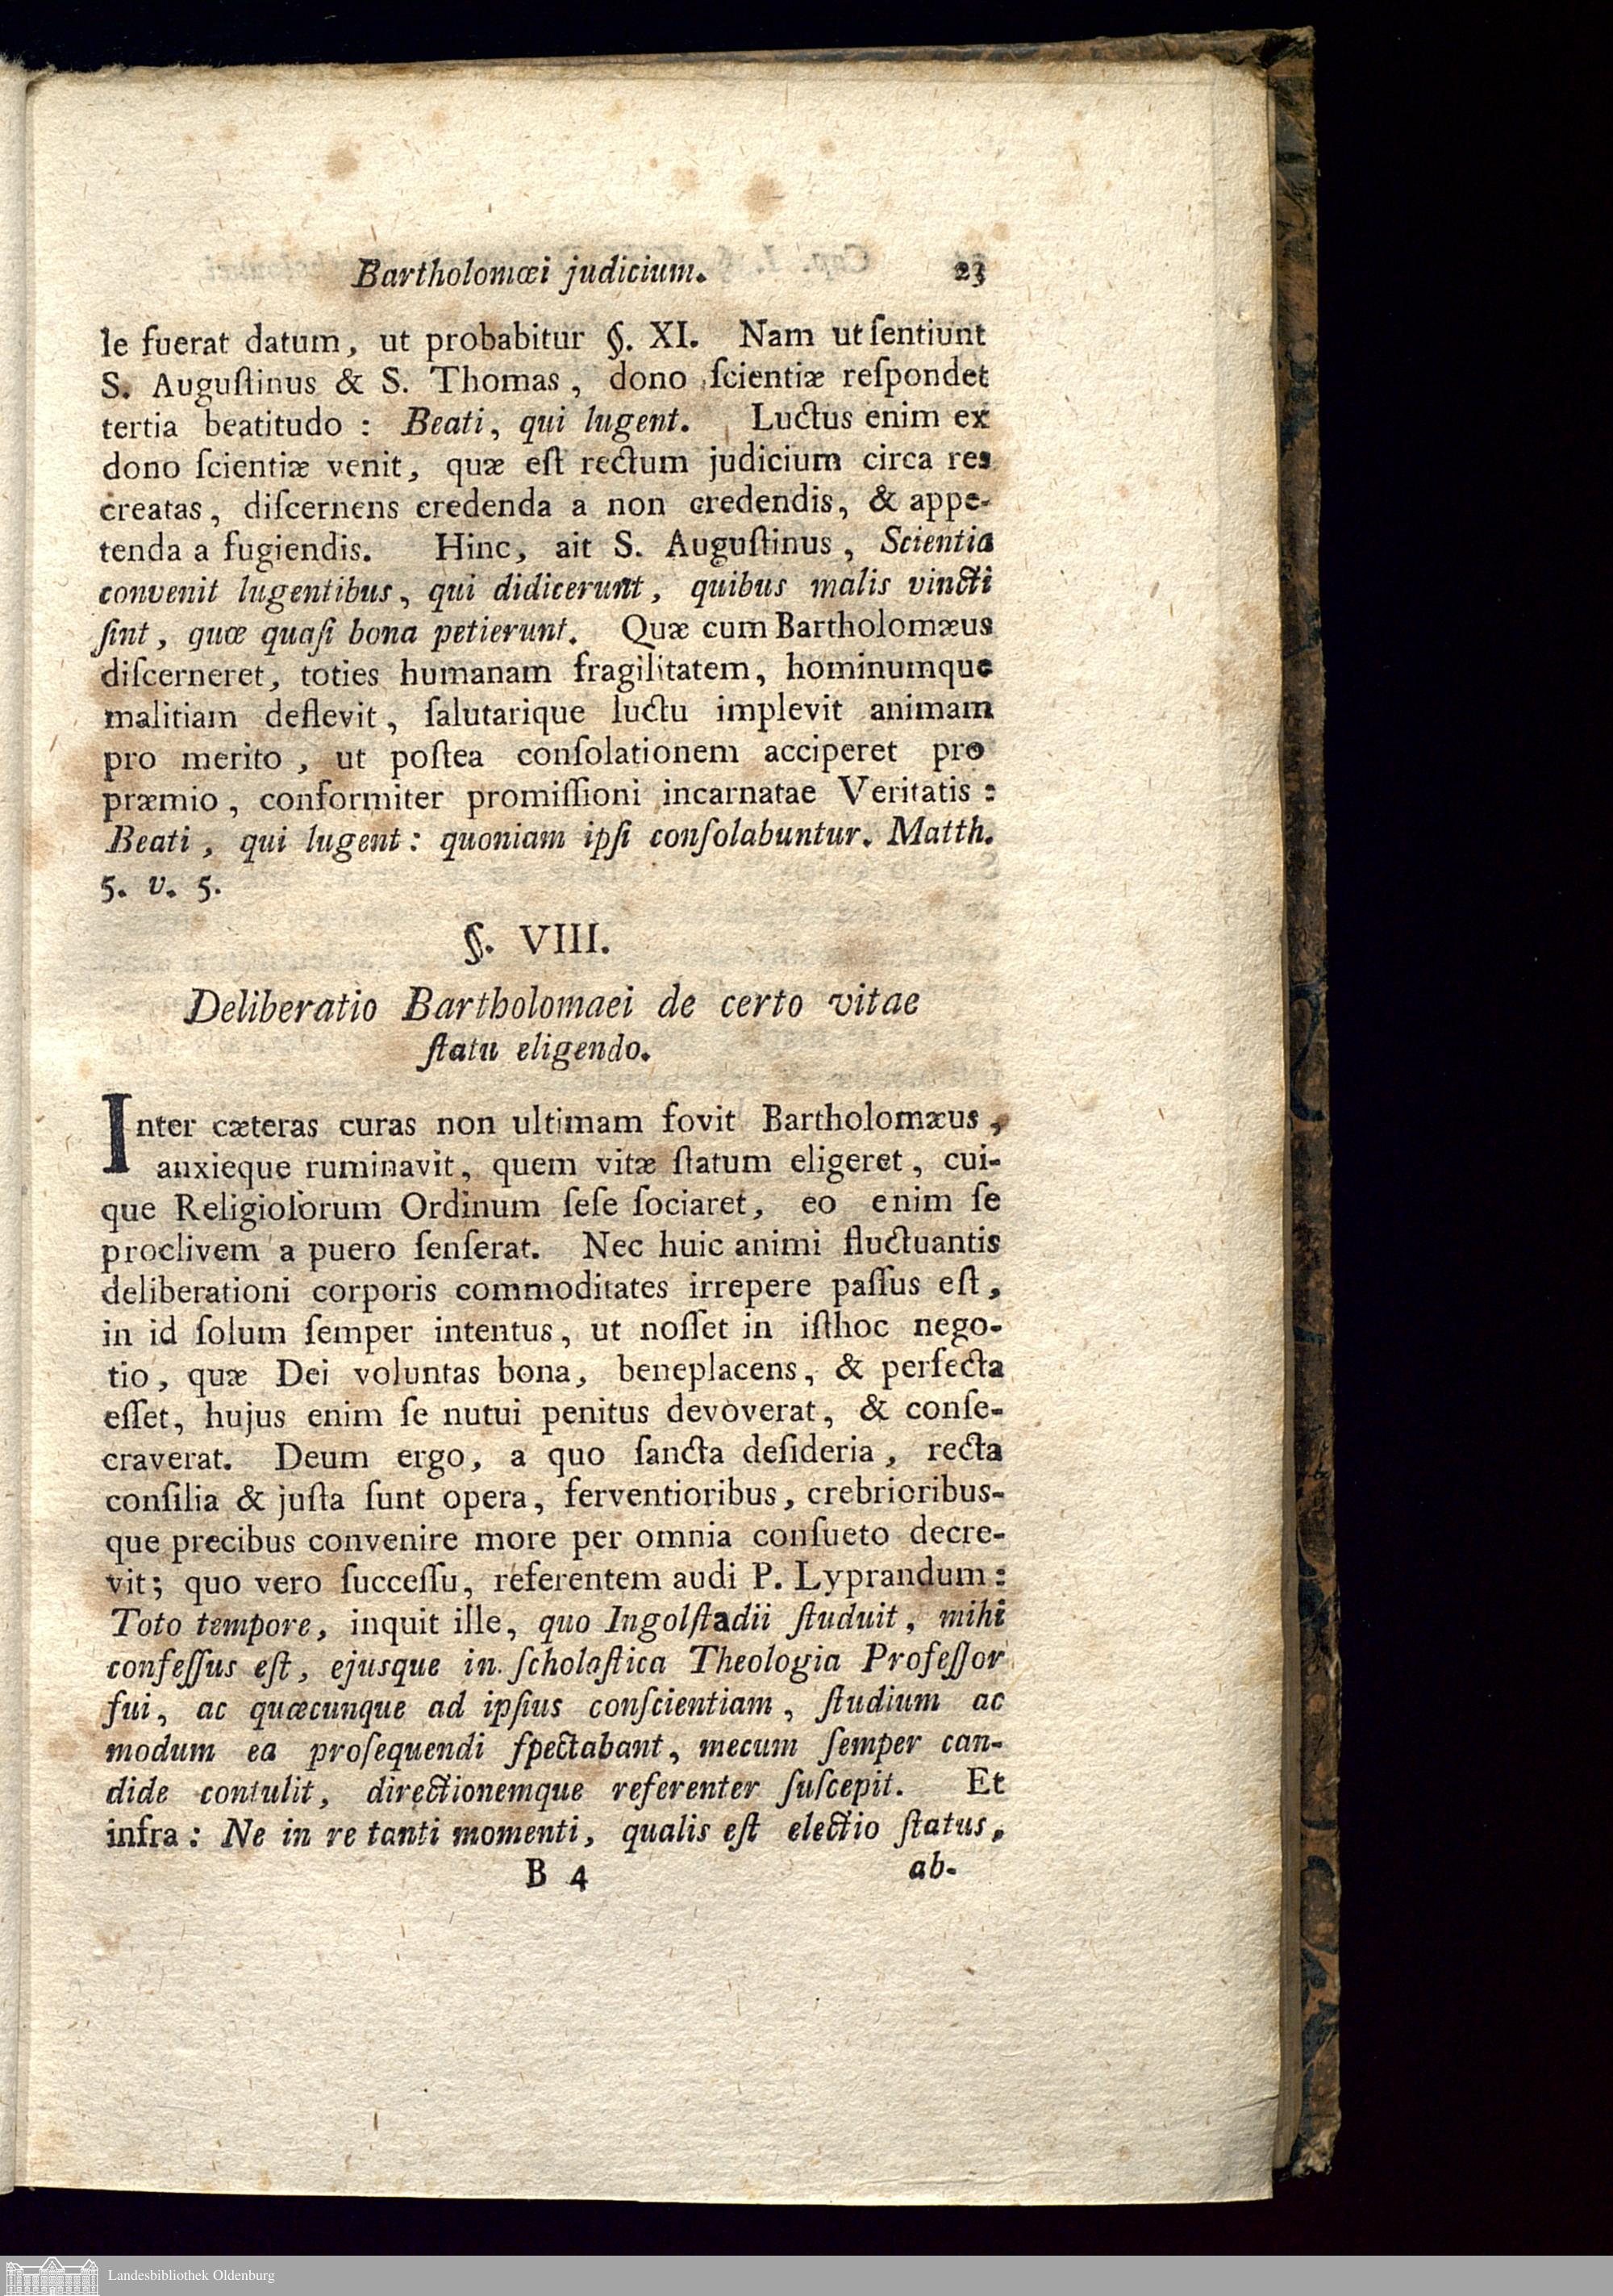 Bartholomæi judicium. 23
le fuerat datum, ut probabitur §. XI. Nam ut ſentiunt
S. Auguſtinus & S. Thomas, dono ſcientiæ reſpondet
tertia beatitudo : Beati, qui lugent. Luctus enim ex
dono ſcientiæ venit, quæ eſt rectum judicium circa res
creatas, diſcernens credenda a non credendis, & appe-
tenda a fugiendis. Hinc, ait S. Auguſtinus, Scientia
convenit lugentibus, qui didicerunt, quibus malis vincti
ſint, quæ quaſi bona petierunt. Quæ cum Bartholomæus
diſcerneret, toties humanam fragilitatem, hominumque
malitiam deflevit, ſalutarique luctu implevit animam
pro merito, ut poſtea conſolationem acciperet pro
præmio, conformiter promiſſioni incarnatae Veritatis :
Beati, qui lugent : quoniam ipſi conſolabuntur. Matth.
5. v. 5.
§. VIII.
Deliberatio Bartholomaei de certo vitae
ſtatu eligendo.
Inter cæteras curas non ultimam fovit Bartholomæus,
anxieque ruminavit, quem vitæ ſtatum eligeret, cui-
que Religioſorum Ordinum ſeſe ſociaret, eo enim ſe
proclivem a puero ſenſerat. Nec huic animi fluctuantis
deliberationi corporis commoditates irrepere paſſus eſt,
in id ſolum ſemper intentus, ut noſſet in iſthoc nego-
tio, quæ Dei voluntas bona, beneplacens, & perfecta
eſſet, hujus enim ſe nutui penitus devoverat, & conſe-
craverat. Deum ergo, a quo ſancta deſideria, recta
conſilia & juſta ſunt opera, ferventioribus, crebrioribus-
que precibus convenire more per omnia conſueto decre-
vit; quo vero ſucceſſu, referentem audi P. Lyprandum :
Toto tempore, inquit ille, quo Ingolſtadii ſtuduit, mihi
confeſſus eſt, ejusque in ſcholaſtica Theologia Profeſſor
fui, ac quæcunque ad ipſius conſcientiam, ſtudium ac
modum ea proſequendi ſpectabant, mecum ſemper can-
dide contulit, directionemque referenter ſuſcepit. Et
infra : Ne in re tanti momenti, qualis eſt electio ſtatus,
B 4 ab-
Landesbibliothek Oldenburg